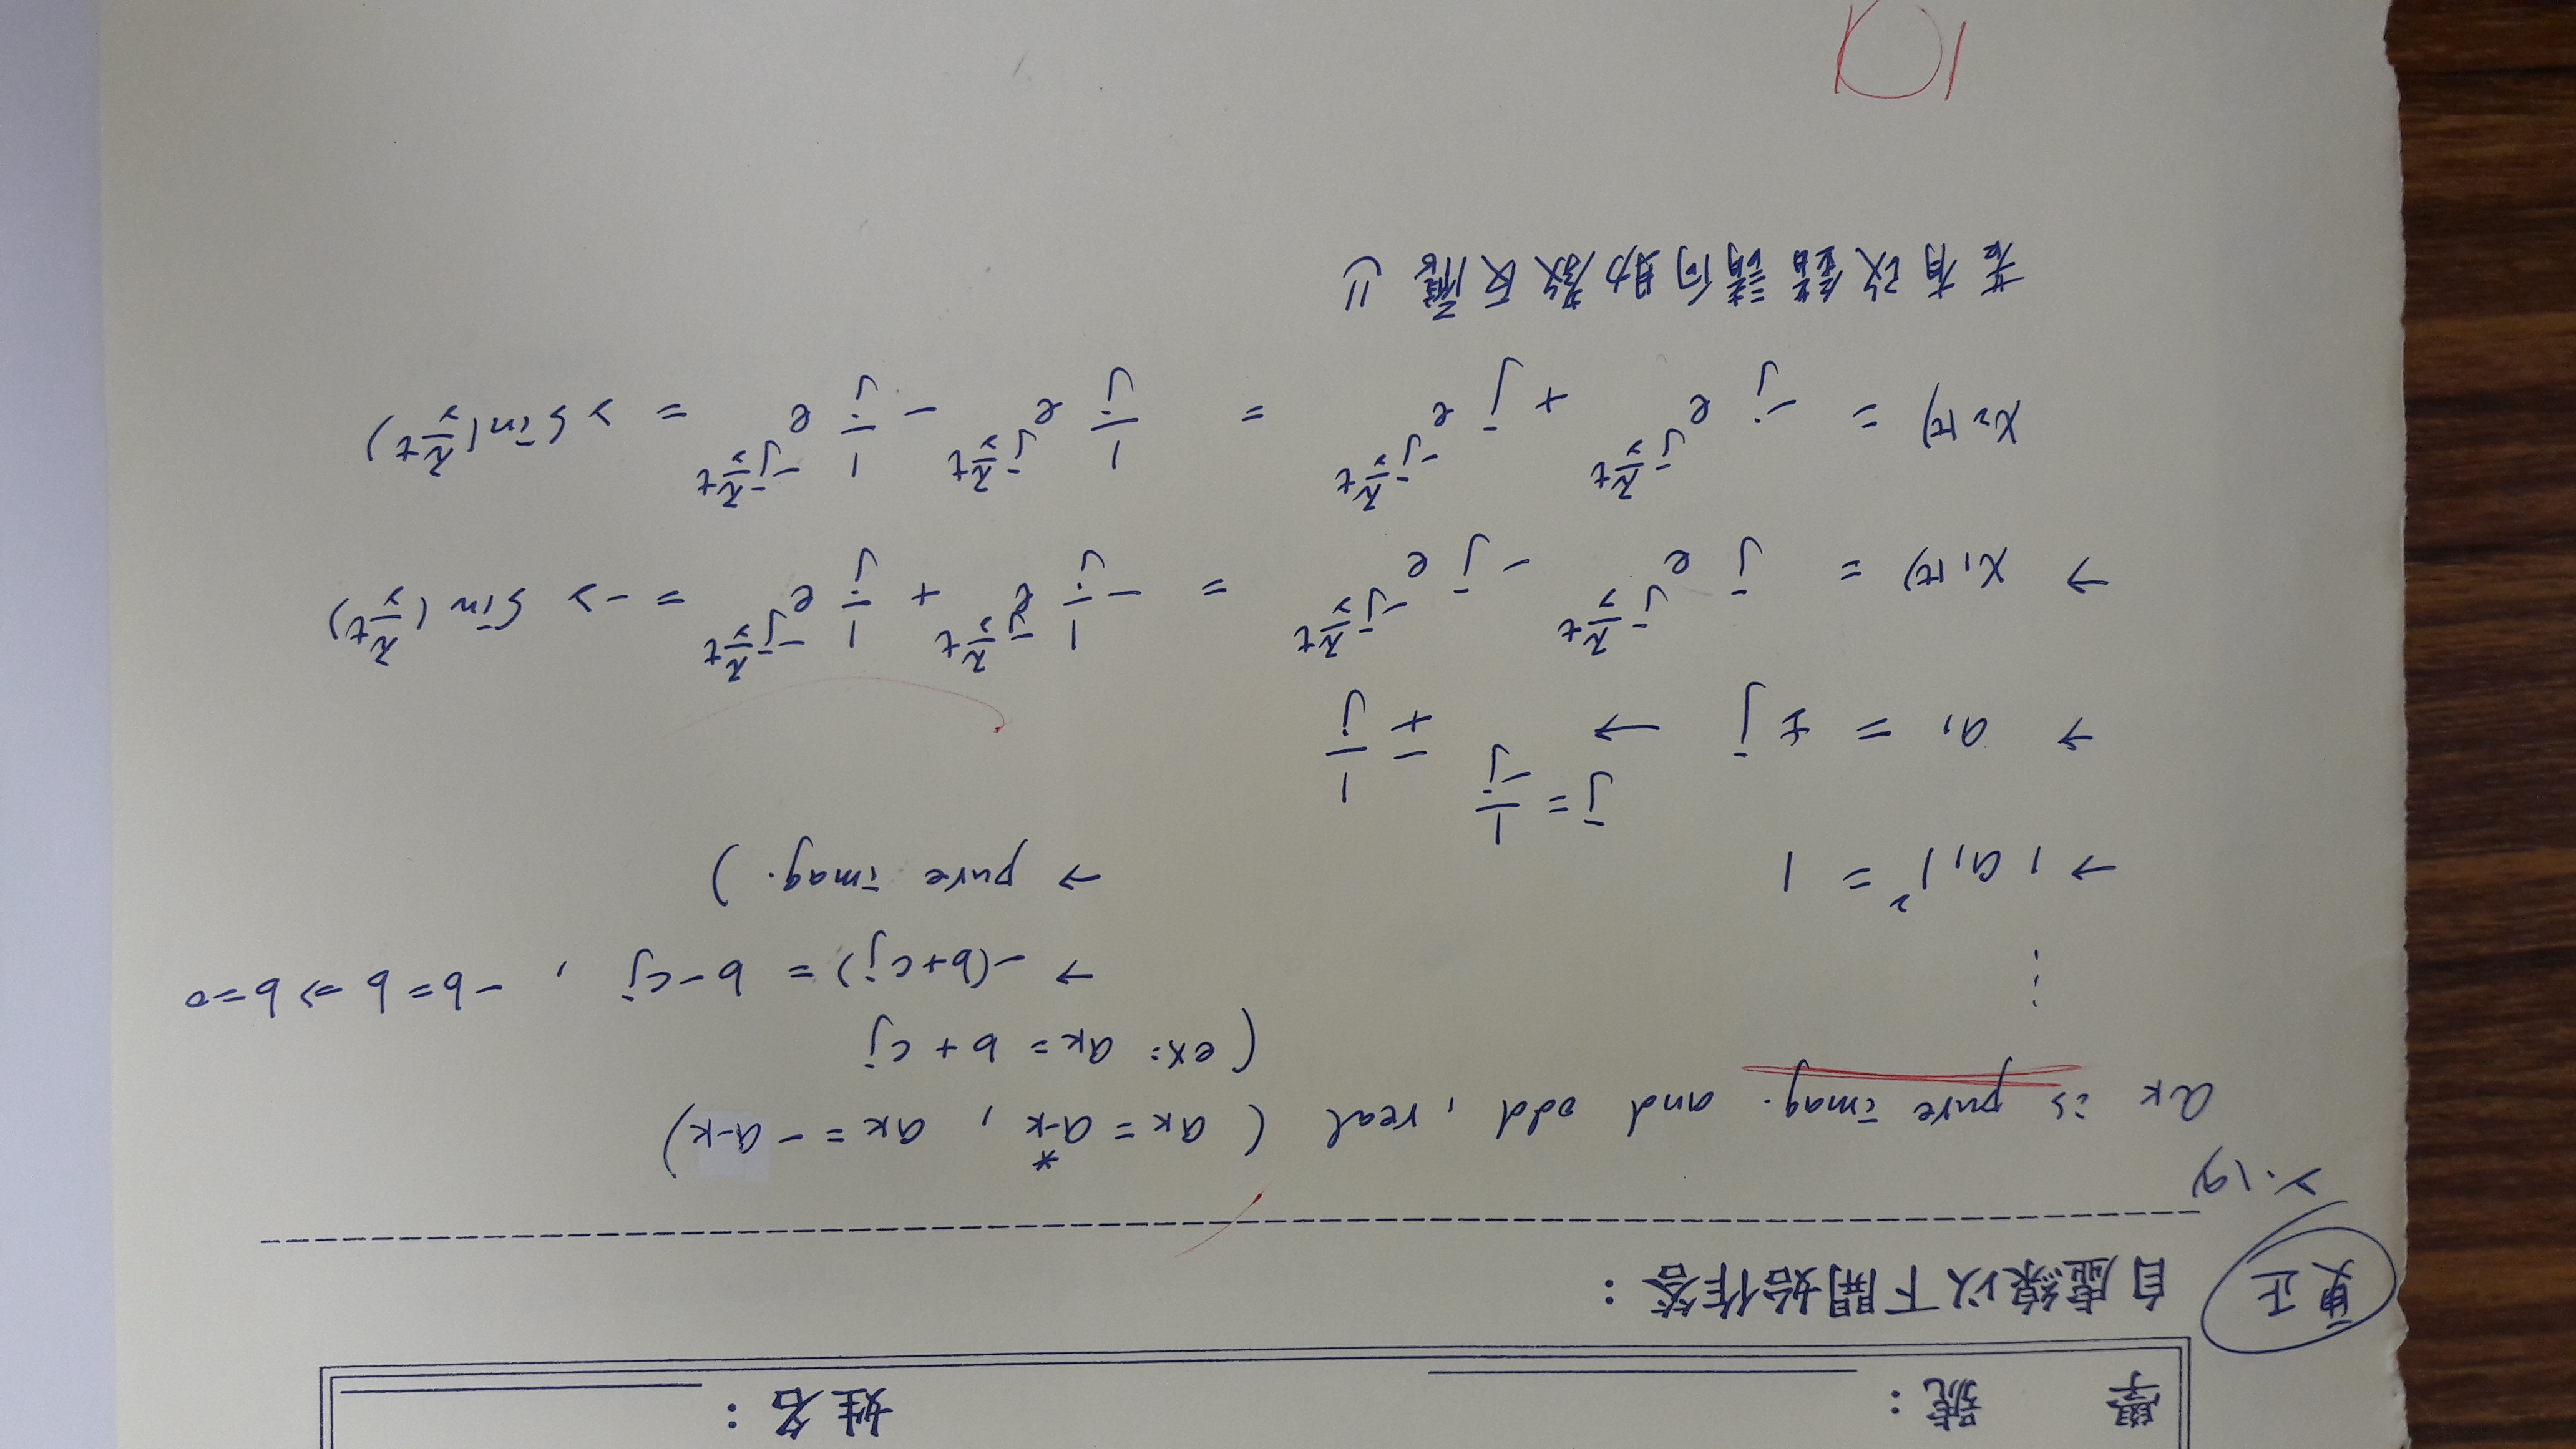 學 號： 姓名：
更正 自虛線以下開始作答：
2.19
aₖ is pure imag. and odd , real ( aₖ = a₋ₖ* , aₖ = - a₋ₖ )
( ex: aₖ = b + cj
⋮
→ -(b+cj) = b - cj , -b = b ⇒ b=0
→ |a₁|² = 1
→ pure imag. )
j = 1/-j
→ a₁ = ± j → ∓ 1/j
→ x₁(t) = j e^(j π/2 t) - j e^(-j π/2 t) = - 1/j e^(j π/2 t) + 1/j e^(-j π/2 t) = -2 sin(π/2 t)
x₂(t) = -j e^(j π/2 t) + j e^(-j π/2 t) = 1/j e^(j π/2 t) - 1/j e^(-j π/2 t) = 2 sin(π/2 t)
若有改錯請向助教反應